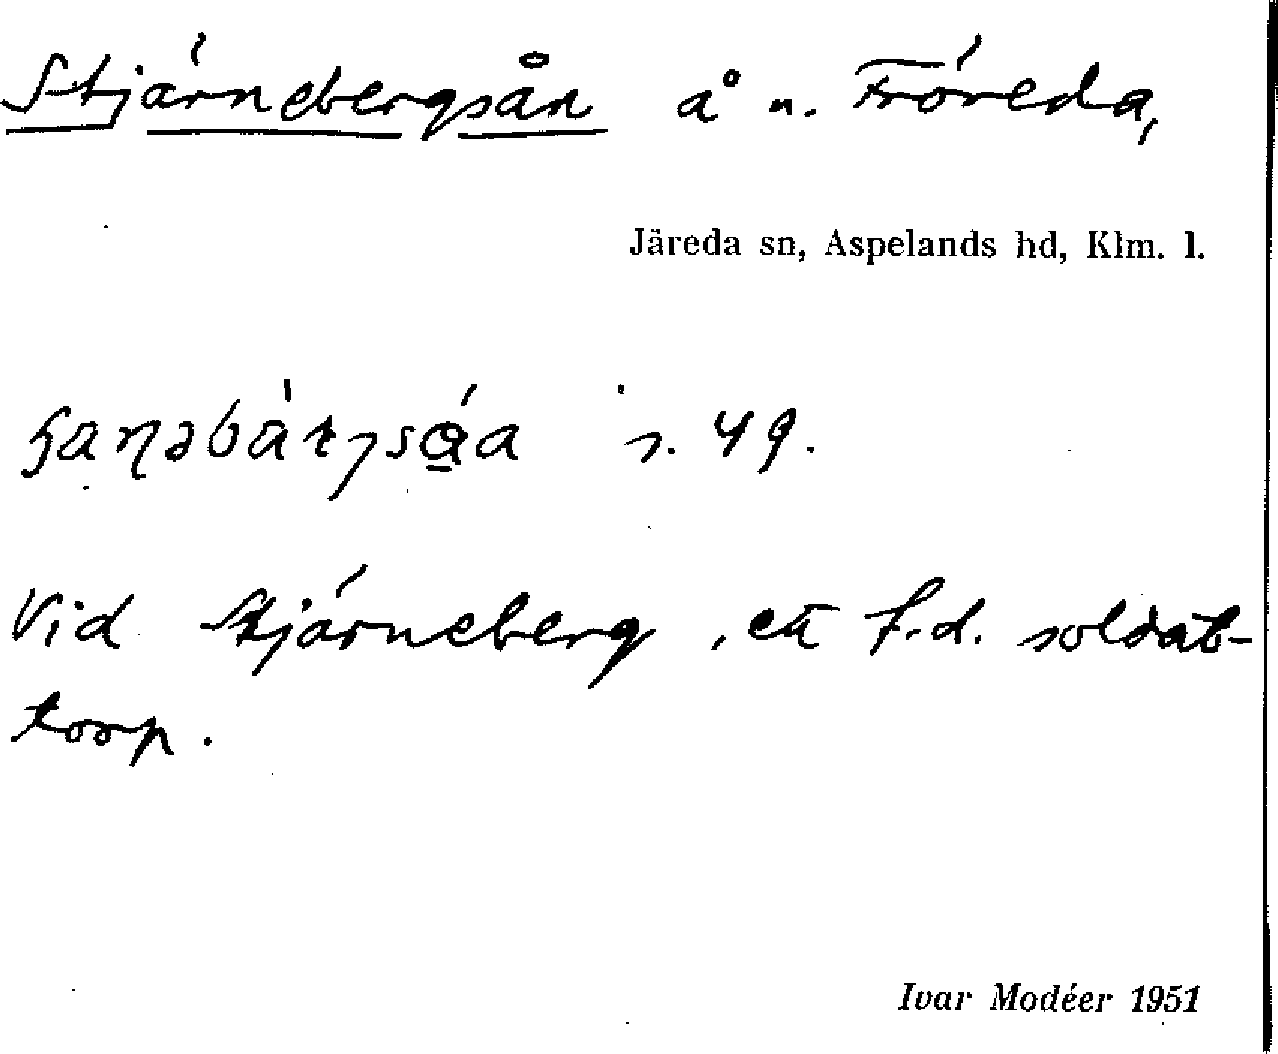 Stjärnebergsån å n. Fröreda,
Järeda sn, Aspelands hd, Klm. l.
s. 49.
Vid Stjärneberg, ett f.d. soldat-
torp.
Ivar Modéer 1951